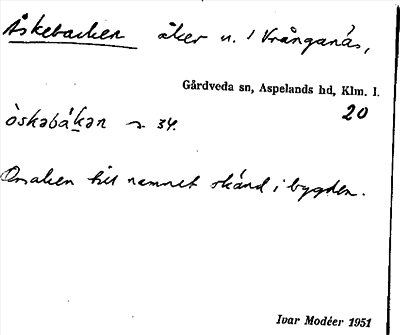 Åskebacken åker u. 1 Vrånganäs,
Gårdveda sn, Aspelands hd, Klm. l.
20
òskəbákən 34.
Orsaken till namnet okänd i bygden.
Ivar Modéer 1951